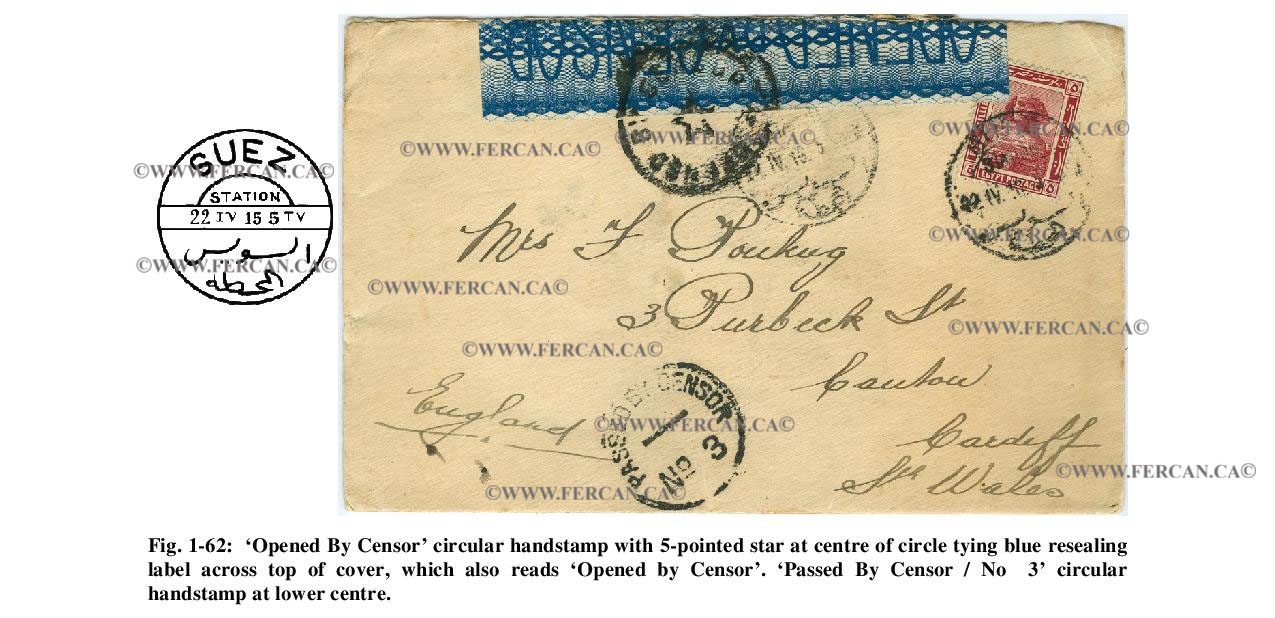 SUEZ
STATION
22 IV 15 5 TV
السويس
المحطة
©WWW.FERCAN.CA©
©WWW.FERCAN.CA©
OPENED BY CENSOR
EGYPT POSTAGE
©WWW.FERCAN.CA©
©WWW.FERCAN.CA©
©WWW.FERCAN.CA©
Mrs F
3 Purbeck St
Canton
Cardiff
Sth Wales
England
©WWW.FERCAN.CA©
©WWW.FERCAN.CA©
©WWW.FERCAN.CA©
PASSED BY CENSOR
No 3
©WWW.FERCAN.CA©
©WWW.FERCAN.CA©
©WWW.FERCAN.CA©
Fig. 1-62: ‘Opened By Censor’ circular handstamp with 5-pointed star at centre of circle tying blue resealing
label across top of cover, which also reads ‘Opened by Censor’. ‘Passed By Censor / No 3’ circular
handstamp at lower centre.